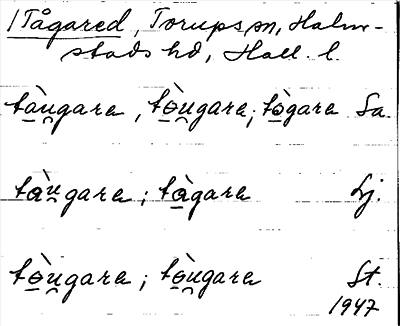 /Tågared, Torups sn, Halm-
stads hd, Hall. l.
tàu̯gara, tòu̯gara; tògara Sa.
tàu̯gara; tàgara Lj.
tòu̯gara; tòu̯gara St.
1947